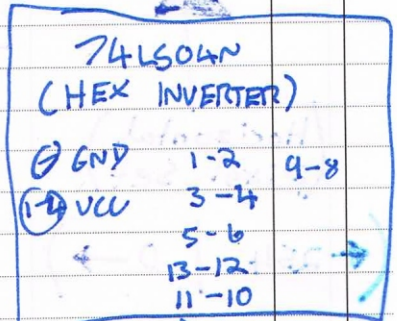 74LS04N
(HEX INVERTER)
⑦ GND 1-2 9-8
⑭ VCC 3-4
5-6
13-12
11-10